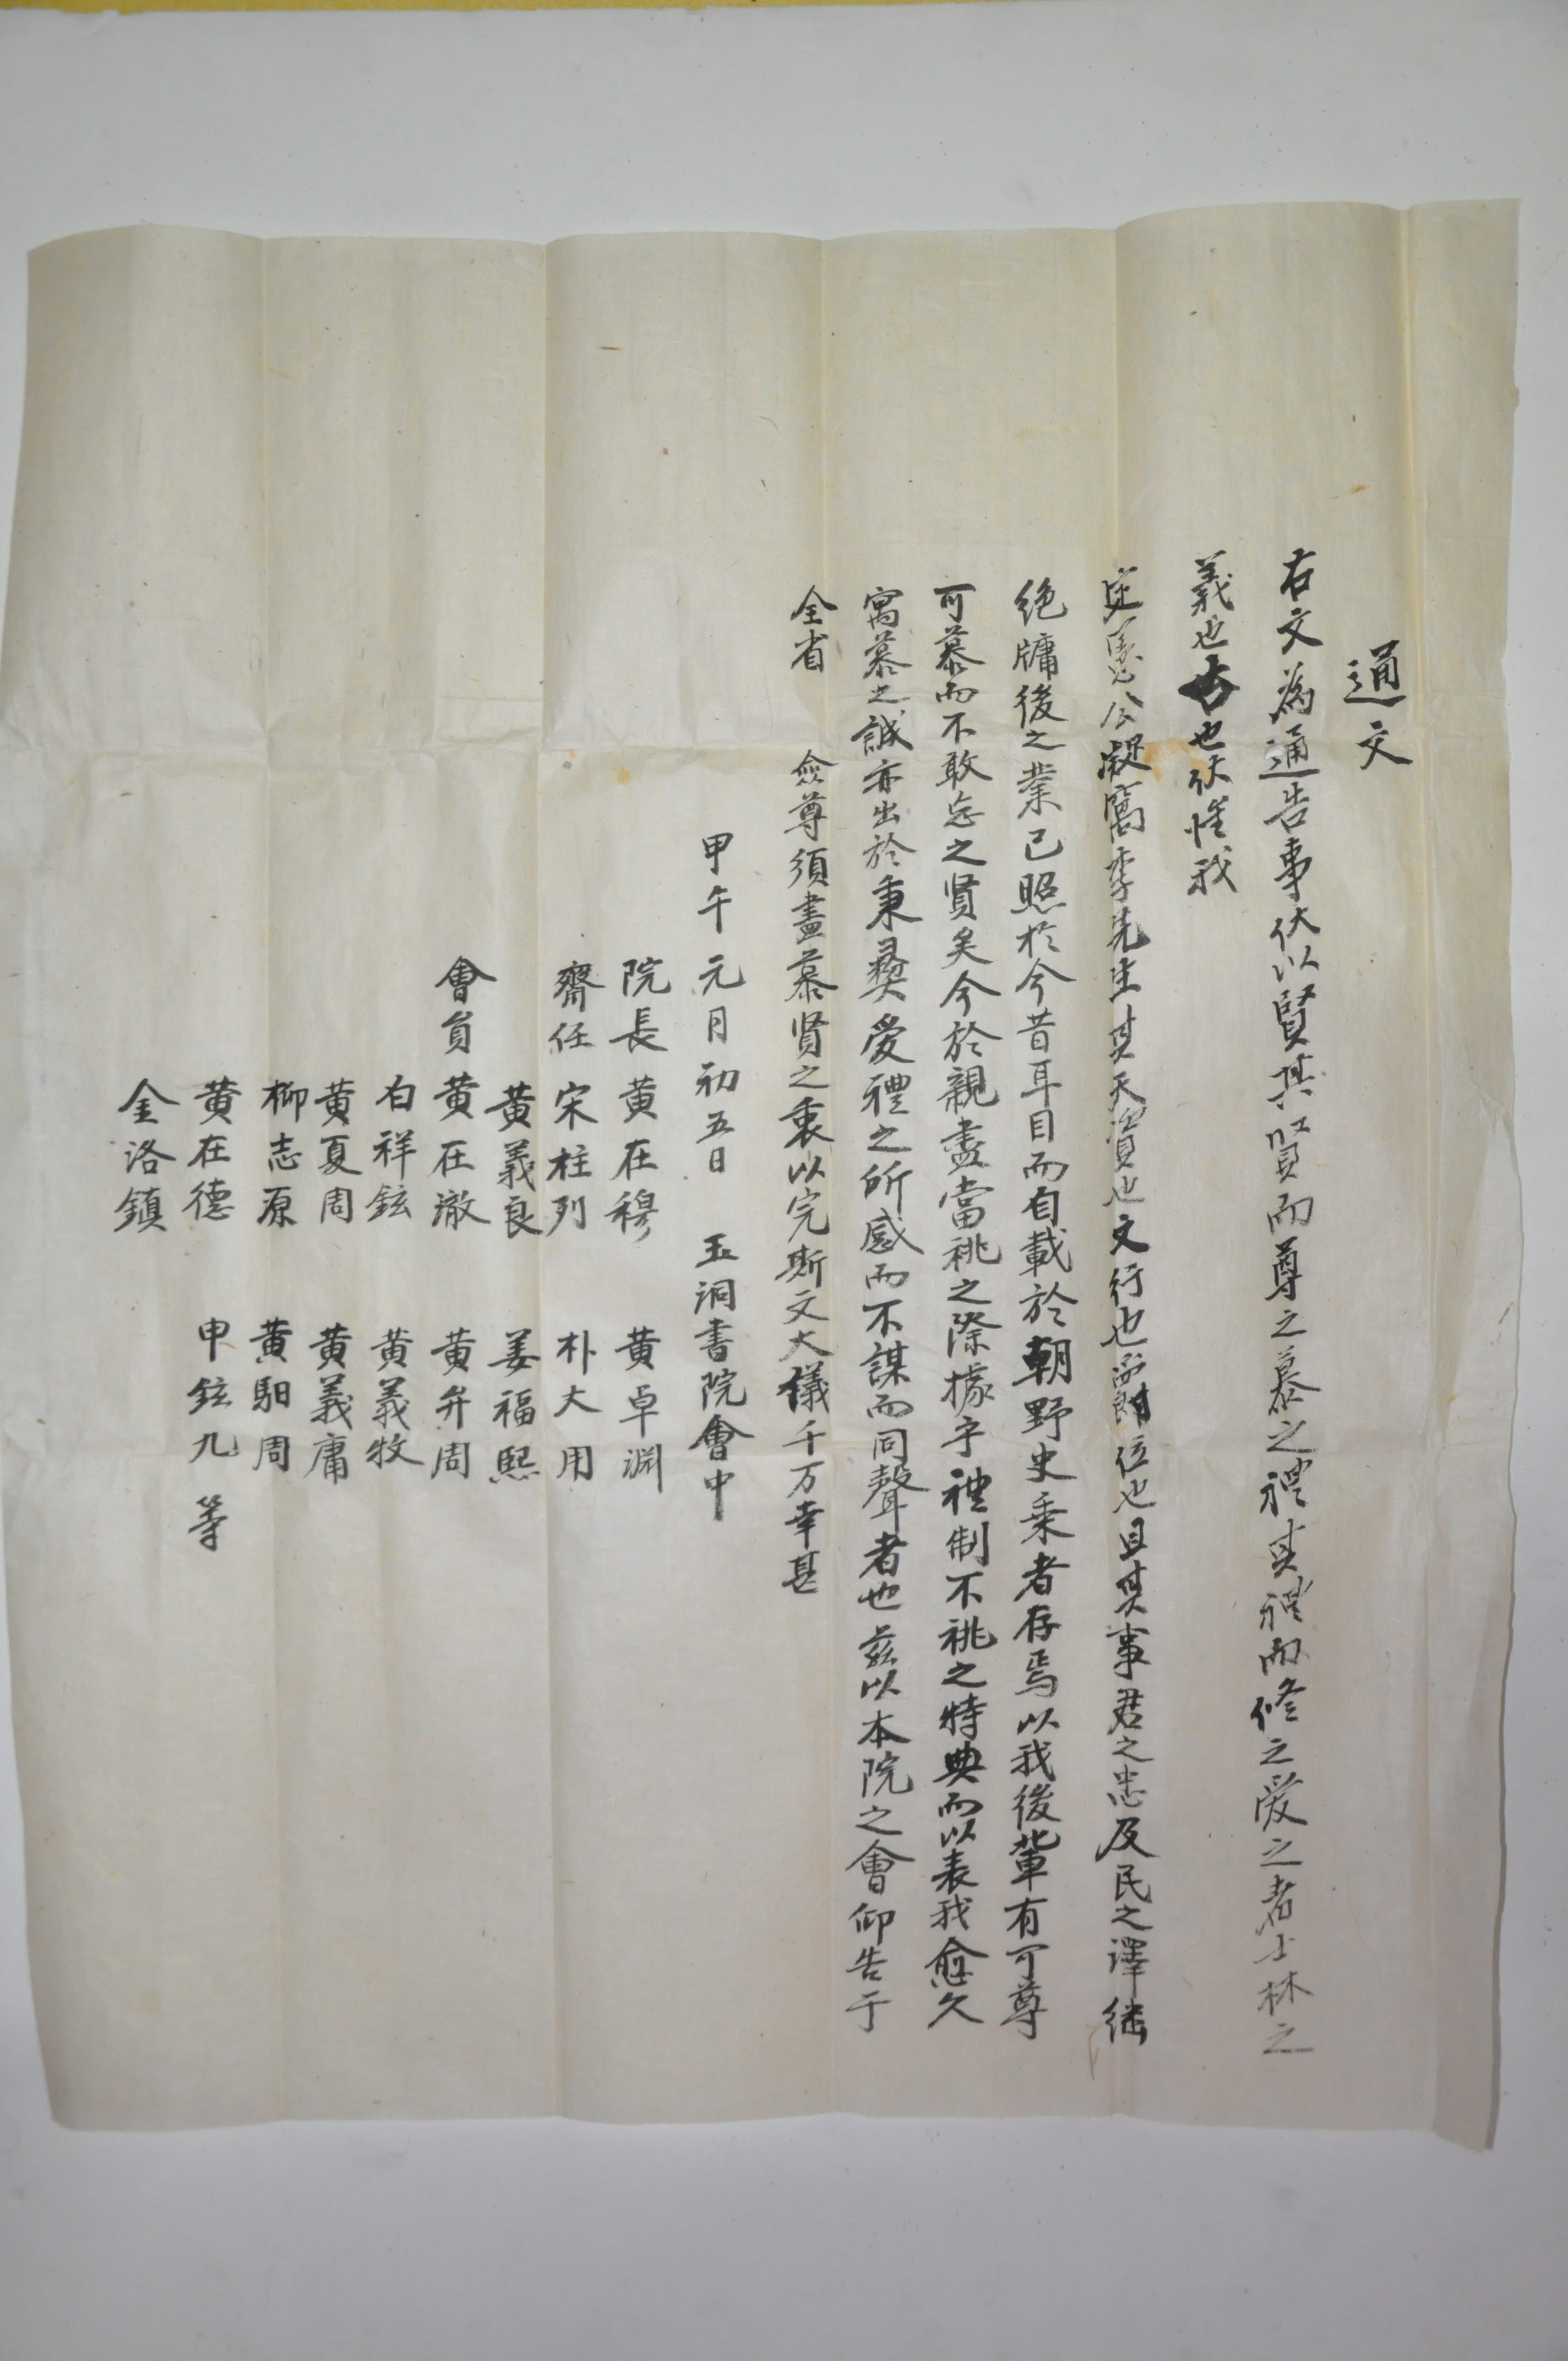 通文
右文為通告事伏以賢其賢而尊之慕之禮其禮而修之愛之者士林之
義也古也伏惟我
定憲公凝窩李先生其天資也文行也爵位也且其事君之忠及民之澤繼
絶牖後之業已照於今昔耳目而自載於朝野史乘者存焉以我後輩有可尊
可慕而不敢忘之賢矣今於親盡當祧之際據乎禮制不祧之特典而以表我愈久
寓慕之誠亦出於秉彛愛禮之所感而不謀而同聲者也玆以本院之會仰告于
全省 僉尊須盡慕賢之衷以完斯文大儀千万幸甚
甲午元月初五日 玉洞書院會中
院長 黄在穆 黄卓淵
齋任 宋柱列 朴大用
黄義良 姜福熙
會員 黄在澈 黄弁周
白祥鉉 黄義牧
黄夏周 黄義庸
柳志源 黄馹周
黄在德 申鉉九 等
金洛鎭